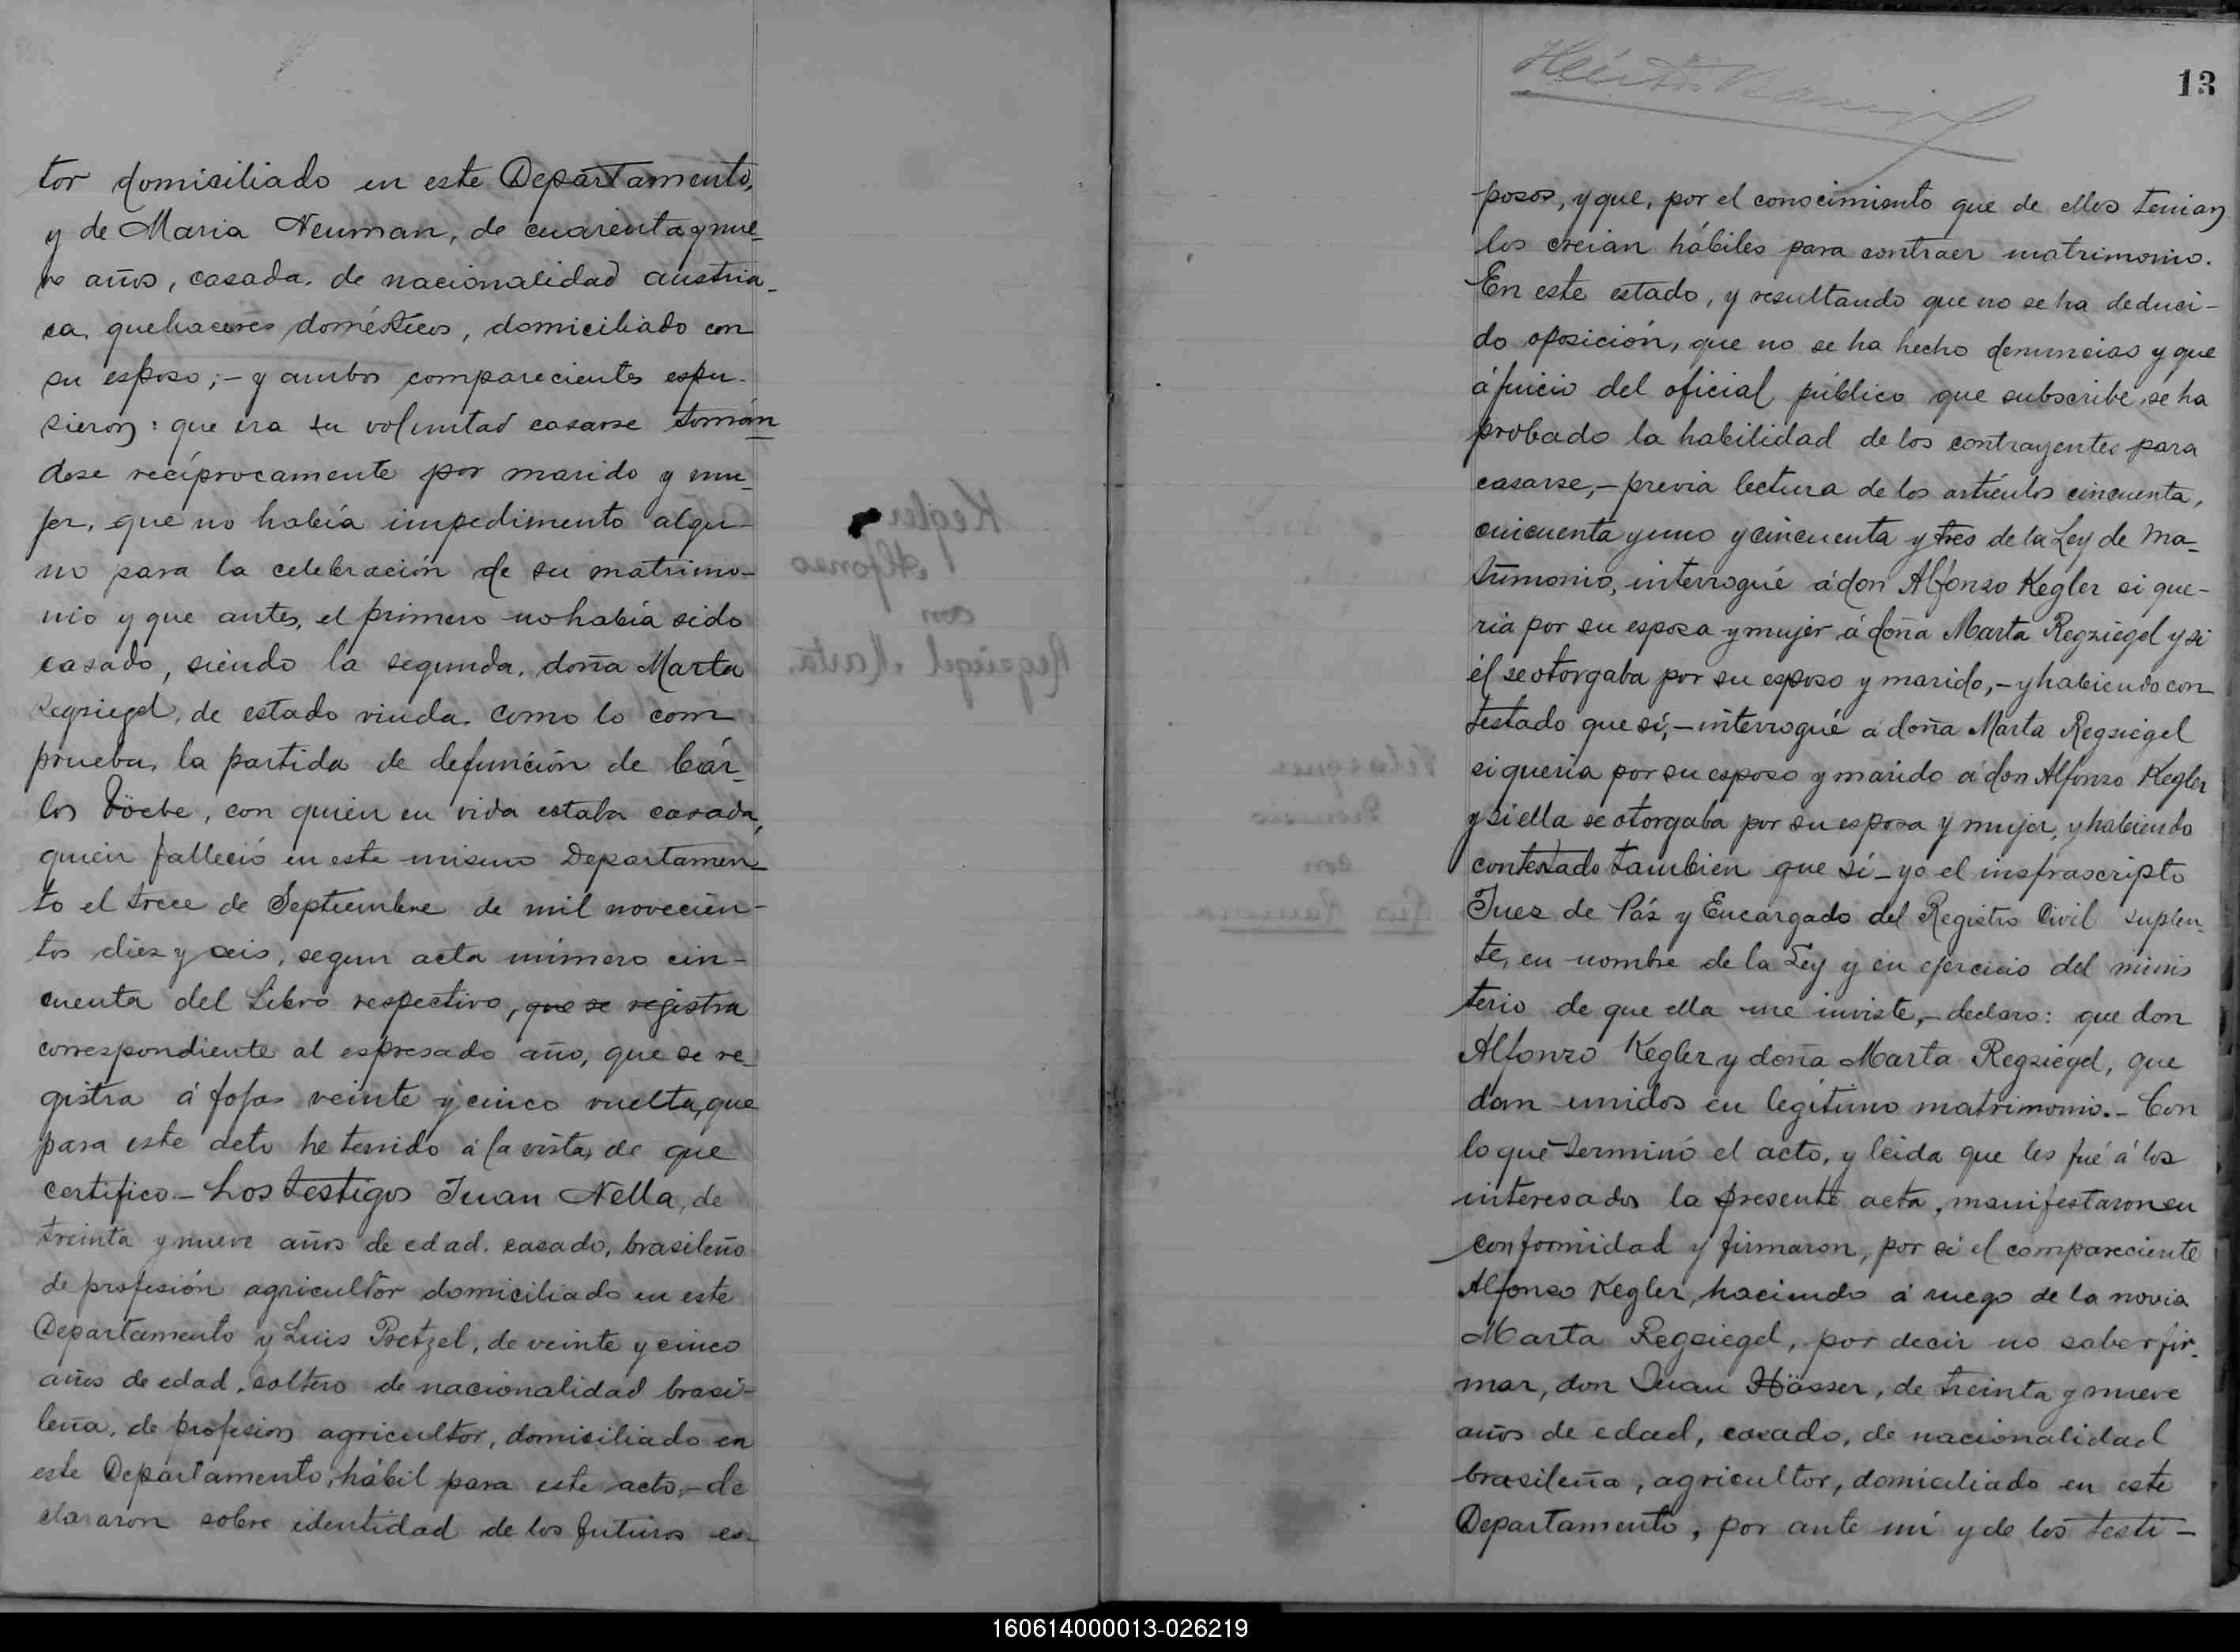 tor domiciliado en este Departamento,
y de Maria Neuman, de cuarenta y nue-
ve años, casada, de nacionalidad austria-
ca, quehaceres domésticos, domiciliado con
su esposo; - y ambos comparecientes espu-
sieron: que era su voluntad casarse tomán
dose recíprocamente por marido y mu-
jer, que no había impedimento algu-
no para la celebración de su matrimo-
nio y que antes, el primero no había sido
casado, siendo la segunda, doña Marta
Regziegel, de estado viuda, como lo com
prueba, la partida de defunción de Cár-
los Döebe, con quien en vida estaba casada,
quien falleció en este mismo Departamen-
to el trece de Septiembre de mil novecien-
tos diez y seis, segun acta número cin-
cuenta del Libro respectivo, que se registra
correspondiente al espresado año, que se re-
gistra á fojas veinte y cinco vuelta, que
para este acto he tenido á la vista, de que
certifico. - Los testigos Juan Nella, de
treinta y nueve años de edad, casado, brasileño
de profesión agricultor domiciliado en este
Departamento y Luis Pretzel, de veinte y cinco
años de edad, soltero de nacionalidad brasi-
leña, de profesion agricultor, domiciliado en
este Departamento, hábil para este acto, - de
clararon sobre identidad de los futuros es-
13
posos, y que, por el conocimiento que de ellos tenian
los creian hábiles para contraer matrimonio.
En este estado, y resultando que no se ha deduci-
do oposición, que no se ha hecho denuncias y que
á juicio del oficial público que subscribe, se ha
probado la habilidad de los contrayentes para
casarse, - previa lectura de los artículos cincuenta,
cincuenta y uno y cincuenta y tres de la Ley de Ma-
trimonio, interrogué á don Alfonzo Kegler si que-
ria por su esposa y mujer á doña Marta Regziegel y si
él se otorgaba por su esposo y marido, - y habiendo con
testado que sí, - interrogué á doña Marta Regziegel
si queria por su esposo y marido á don Alfonzo Kegler
y si ella se otorgaba por su esposa y mujer, y habiendo
contestado tambien que sí - yo el insfrascripto
Juez de Páz y Encargado del Registro Civil suplen-
te, en nombre de la Ley y en ejercicio del minis
terio de que ella me inviste, - declaro: que don
Alfonzo Kegler y doña Marta Regziegel, que
dan unidos en legítimo matrimonio. - Con
lo que terminó el acto, y leida que les fué á los
interesados la presente acta, manifestaron su
conformidad y firmaron, por sí el compareciente
Alfonso Kegler, haciendo á ruego de la novia
Marta Regziegel, por decir no saber fir-
mar, don Juan Hässer, de treinta y nueve
años de edad, casado, de nacionalidad
brasileña, agricultor, domiciliado en este
Departamento, por ante mí y de los testi-
160614000013-026219